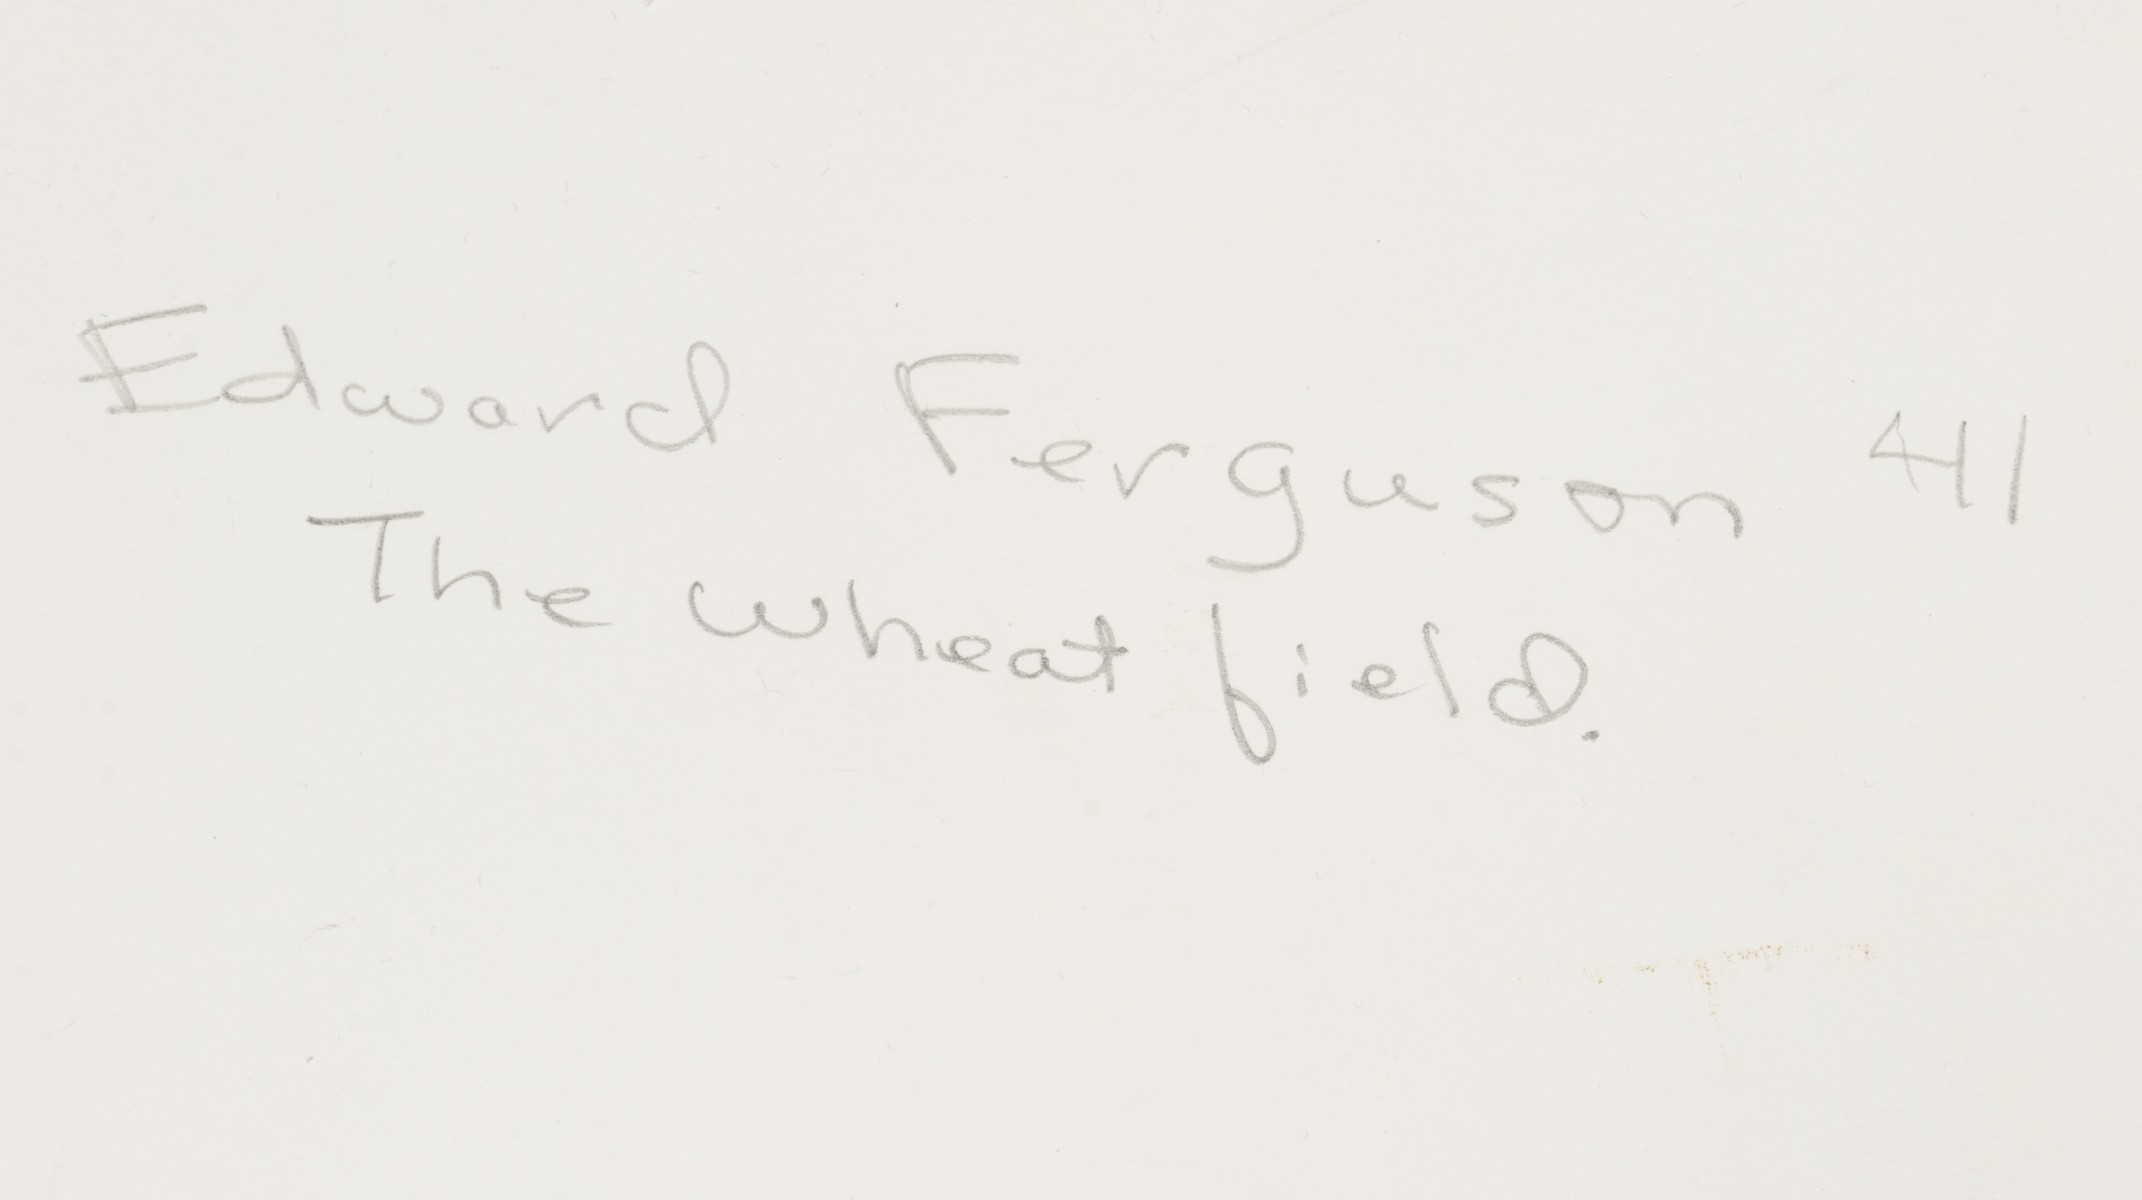 Edward Ferguson 41
The wheat field.